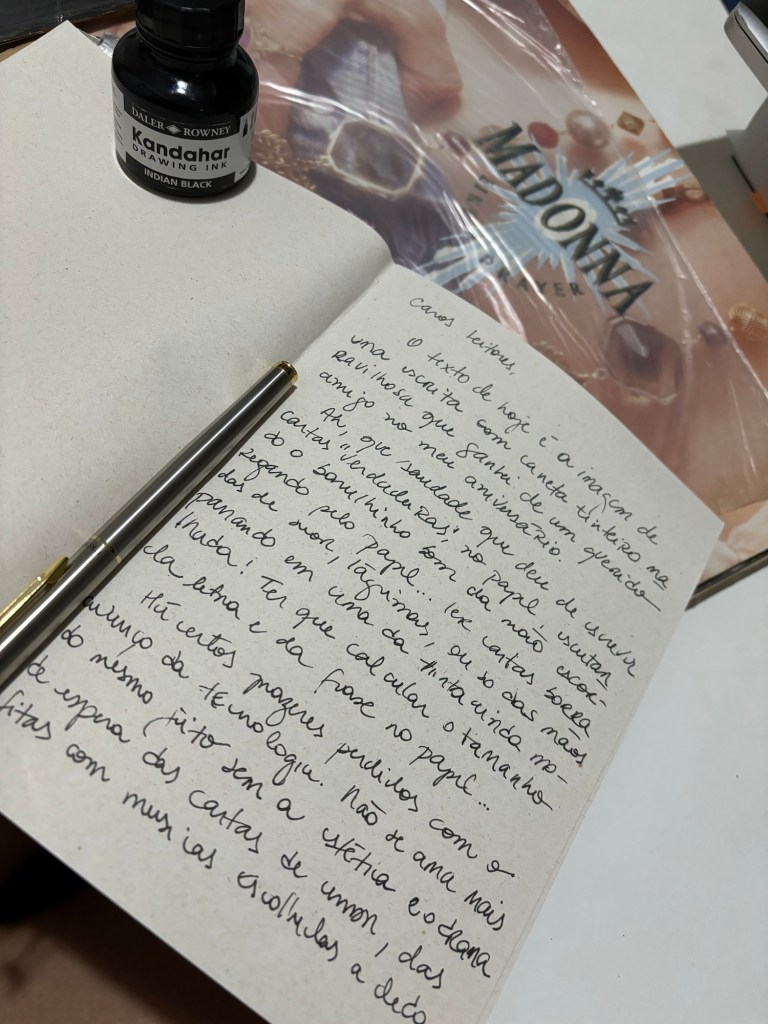 DALER ROWNEY
Kandahar
DRAWING INK
INDIAN BLACK
MADONNA
LIKE A
PRAYER
Caros leitores,
O texto de hoje é a imagem de
uma escrita com caneta tinteiro ma
ravilhosa que ganhei de um querido
amigo no meu aniversário.
Ah, que saudade que deu de escrever
cartas "verdadeiras", no papel, escutan
do o barulhinho bom da mão escor-
regando pelo papel... ler cartas borra
das de suor, lágrimas, ou só das mãos
passando em cima da tinta ainda mo-
lhada! Ter que calcular o tamanho
da letra e da frase no papel...
Há certos prazeres perdidos com o
avanço da tecnologia. Não se ama mais
do mesmo jeito sem a estética e o drama
de espera das cartas de amor, das
fitas com músicas escolhidas a dedo